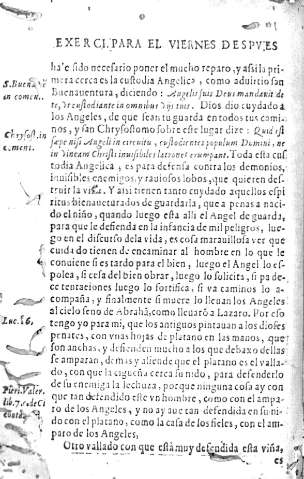 EXERCI. PARA EL VIERNES DESPVES
ha sido necesario poner el mucho reparo, y assi la pri
mera cerca es la custodia Angelica, como aduirtio san
S. Buena
in comen.
Buenauentura, diciendo: Angelis suis Deus mandauit de
te, de custodiante in omnibus vijs tuis. Dios dio cuydado a
los Angeles, de que sean tu guarda en todos tus cami
Chrysost. in
coment.
nos, y san Chrysostomo sobre este lugar dize: Quid est
sæpe nisi Angeli in circuitu, custodientes populum Domini, ne
in vineam Christi inuisibiles latrones erumpant. Toda esta cus
todia Angelica, es para defensa contra los demonios,
inuisibles enemigos, y rauiosos lobos, que quieren des
truir la viña. Y assi tienen tanto cuydado aquellos espi
ritus bienauenturados de guardarla, que apenas a naci
do el niño, quando luego esta alli el Angel de guarda,
para que le defienda en la infancia de mil peligros, lue
go en el discurso de la vida, es cosa marauillosa ver que
cuidado tienen de encaminar al hombre en lo que le
conuiene si es tardo para el bien, luego el Angel lo es
polea, si cesa del bien obrar, luego lo solicita, si pade
ce tentaciones luego lo fortifica, si va camino lo a
compaña, y finalmente si muere lo lleuan los Angeles
Luc. 16.
al cielo seno de Abrahã, como lleuarõ a Lazaro. Por eso
tengo yo para mi, que los antiguos pintauan a los dioses
penates, con vnas hojas de platano en las manos, que
son anchas, y defienden mucho a los que debaxo dellas
se amparan, demas y allende que el platano es el valla-
Pieri. Valer.
lib. 7.
do, con que la cigueña cerca su nido, para defenderlo
de su enemiga la lechuza, porque ninguna cosa ay con
que tan defendido este vn hombre, como con el ampa-
ro de los Angeles, y no ay aue tan defendida en su ni-
do con el platano, como la casa de los fieles, con el am-
paro de los Angeles,
Otro vallado con que está muy defendida esta viña,
es